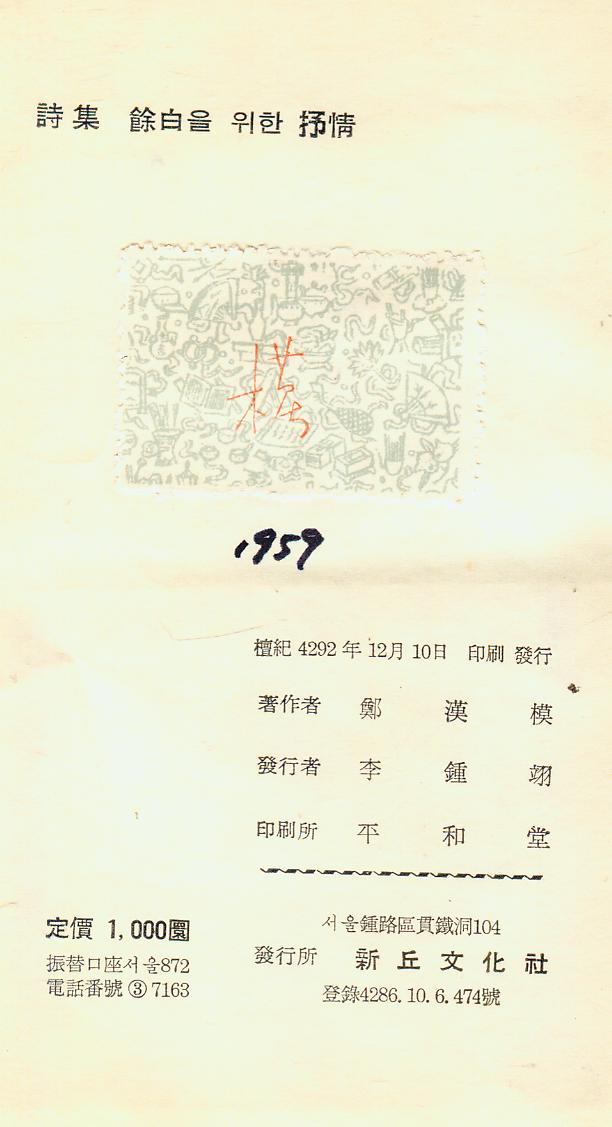 詩集 餘白을 위한 抒情
模
1959
檀紀 4292年 12月 10日 印刷 發行
著作者 鄭漢模
發行者 李鍾翊
印刷所 平和堂
定價 1,000圜
振替口座서울872
電話番號 ③ 7163
서울鍾路區貫鐵洞104
發行所 新丘文化社
登錄4286.10.6.474號